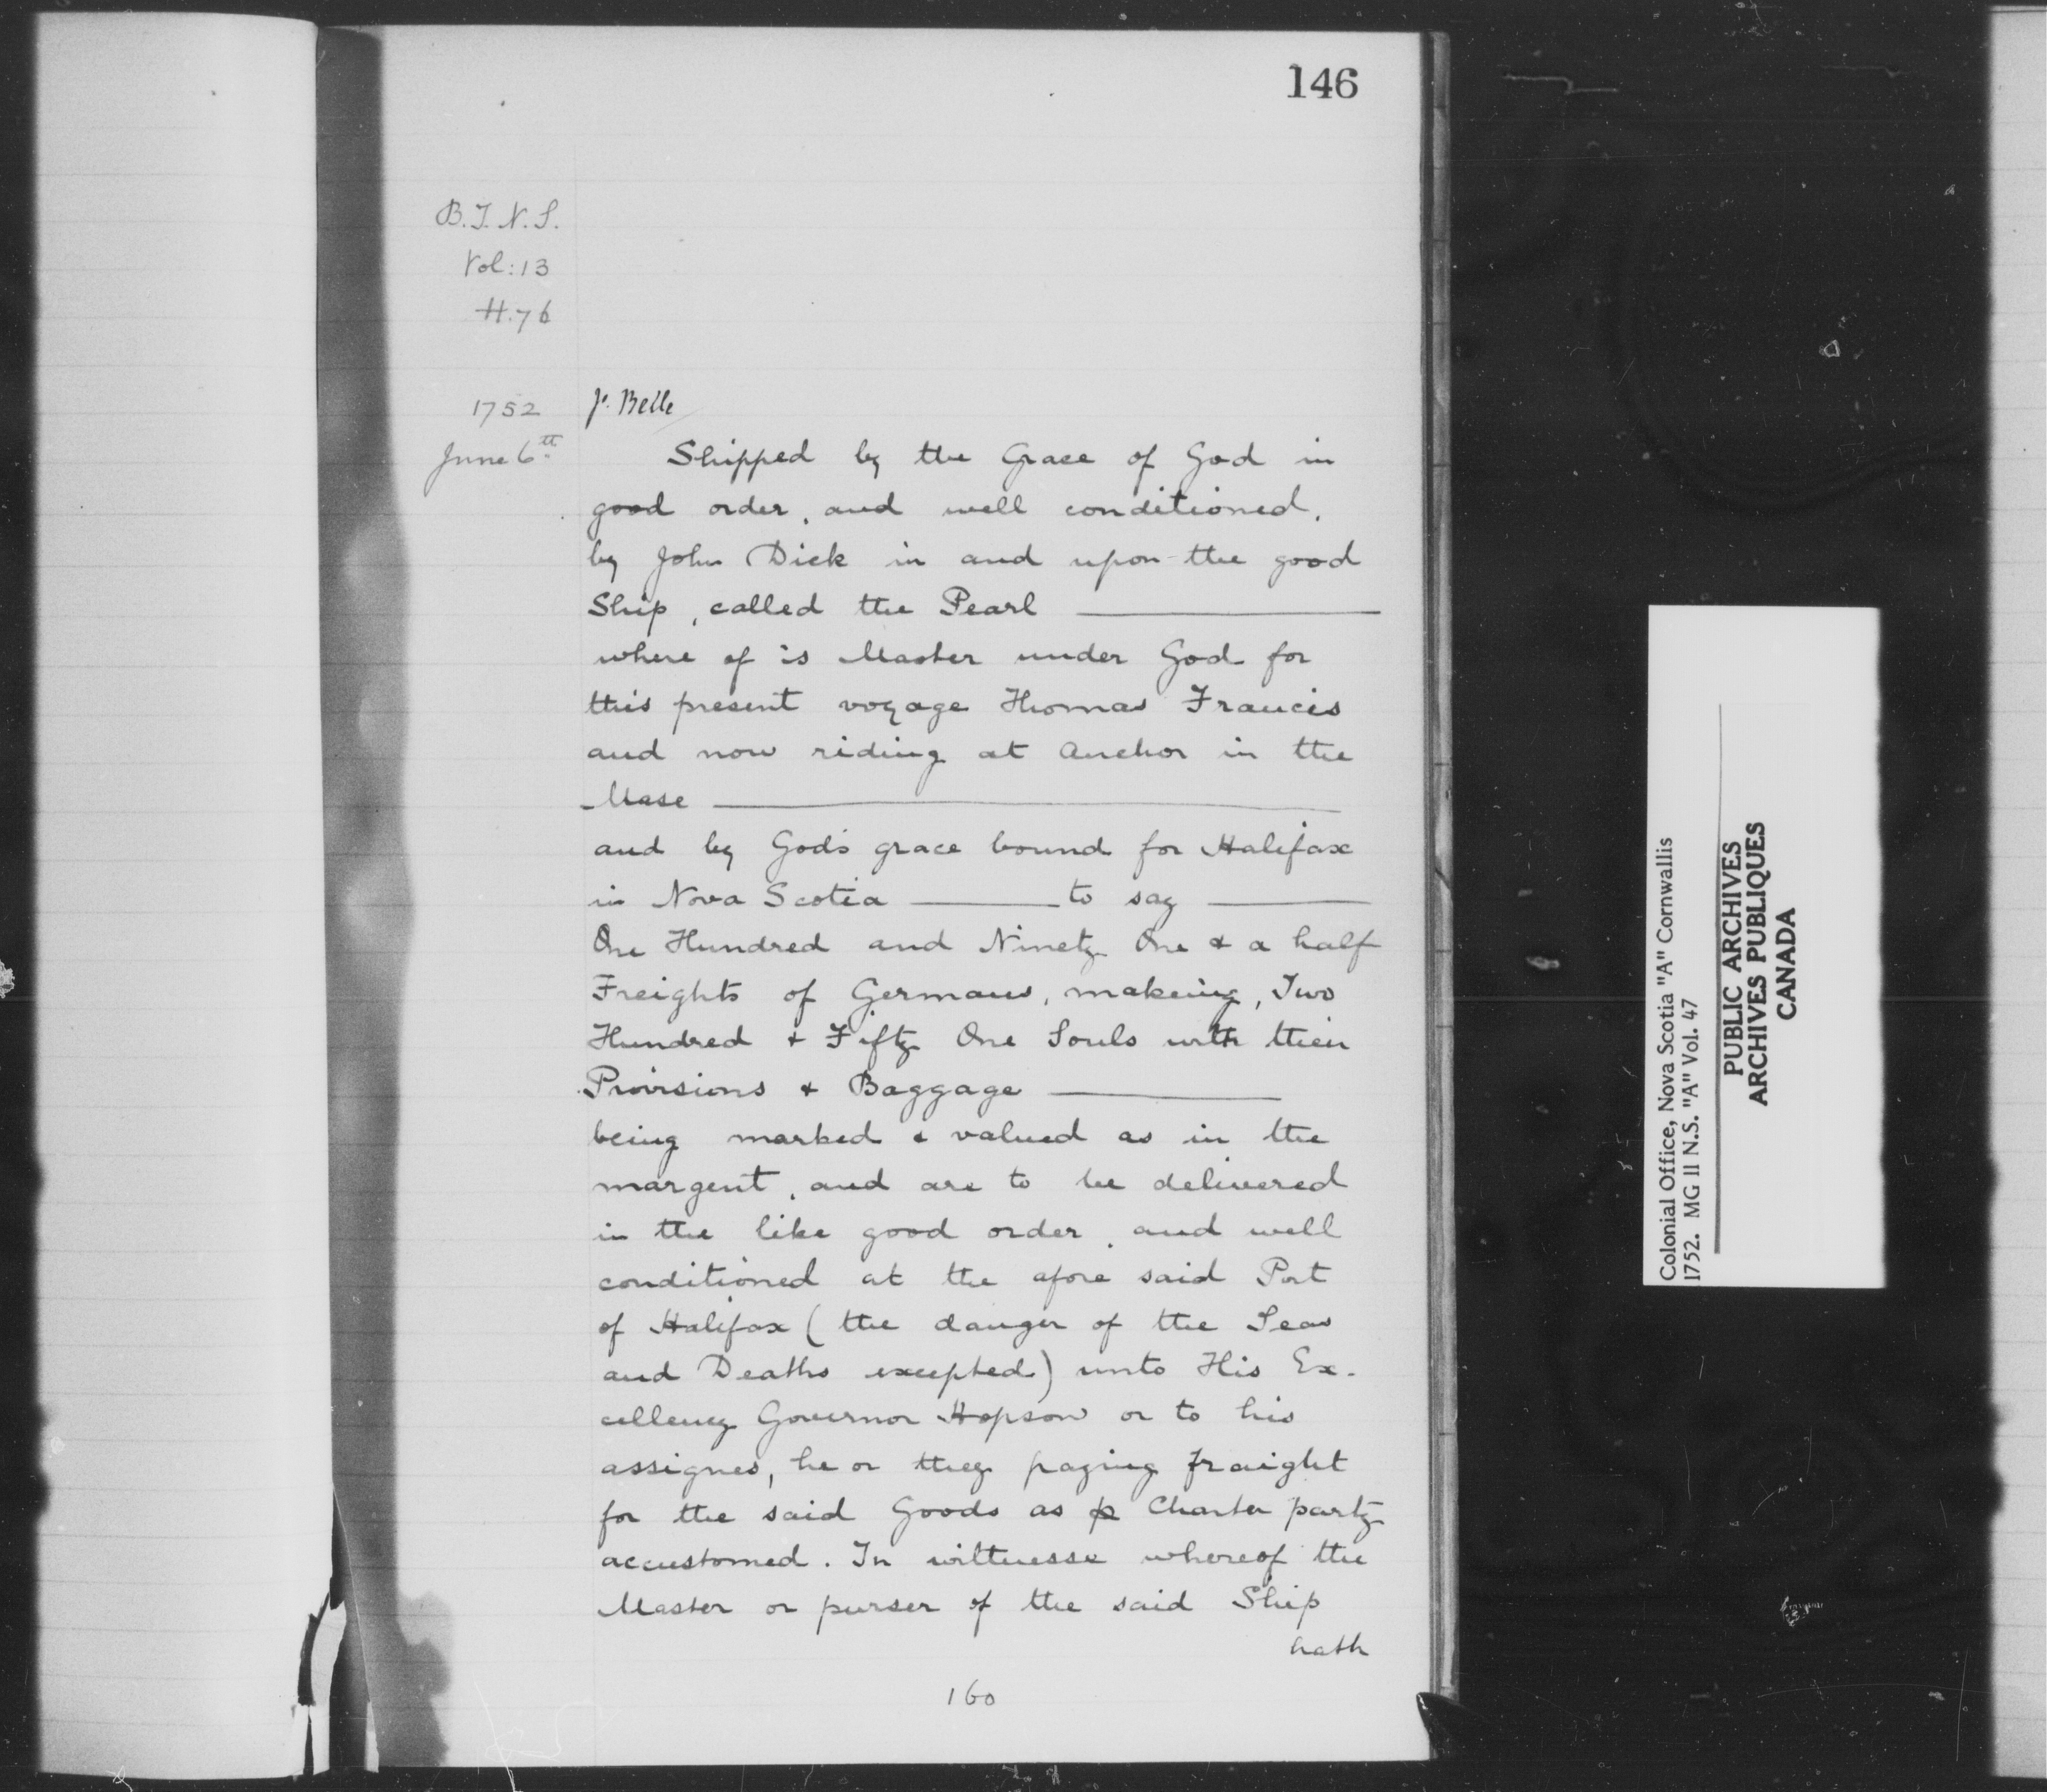 146
B.T. N. S.
Vol: 13
H. 76
1752
June 6th
J. Belle
Shipped by the Grace of God in
good order, and well conditioned,
by John Dick in and upon the good
Ship, called the Pearl
where of is Master under God for
this present voyage Thomas Francis
and now riding at Anchor in the
Mase
and by God's grace bound for Halifax
in Nova Scotia to say
One Hundred and Ninety One & a half
Freights of Germans, makeing, Two
Hundred & Fifty One Souls with their
Provisions & Baggage
being marked & valued as in the
margent, and are to be delivered
in the like good order, and well
conditioned at the afore said Port
of Halifax (the danger of the Seas
and Deaths excepted) unto His Ex-
cellency Governor Hopson or to his
assignes, he or they paying fraight
for the said Goods as p Charter party
accustomed. In wittnesse whereof the
Master or purser of the said Ship
hath
160
Colonial Office, Nova Scotia "A" Cornwallis
1752. MG 11 N.S. "A" Vol. 47
PUBLIC ARCHIVES
ARCHIVES PUBLIQUES
CANADA